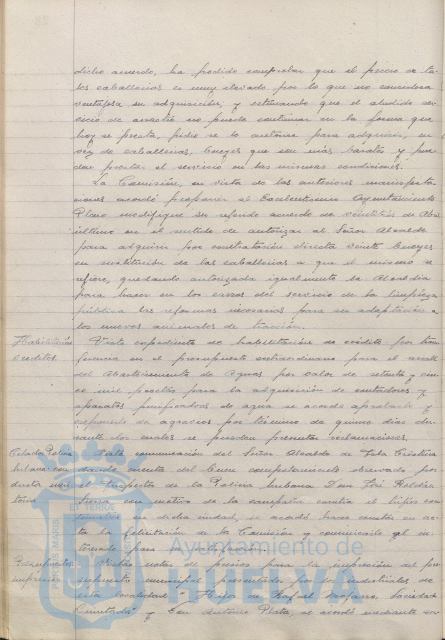 dicho acuerdo, ha podido comprobar que el precio de ta-
les caballerías es muy elevado por lo que no considera
ventajosa su adquisición, y estimando que el aludido ser-
vicio de arrastre no puede continuar en la forma que
hoy se presta, pide se le autorice para adquirir, en
vez de caballerías, bueyes que son más baratos y pue-
den prestar el servicio en las mismas condiciones.
La Comisión, en vista de las anteriores manifesta-
ciones acordó proponer al Excelentísimo Ayuntamiento
Pleno modifique su referido acuerdo de veintitrés de Abril
último en el sentido de autorizar al Señor Alcalde
para adquirir por contratación directa veinte bueyes
en sustitución de las caballerías a que el mismo se
refiere, quedando autorizada igualmente la Alcaldía
para hacer en los carros del servicio de la limpieza
pública las reformas necesarias para su adaptación a
los nuevos animales de tracción.
Habilitación
creditos
Visto expediente de habilitación de crédito por trans-
ferencia en el presupuesto extraordinario para el
del Abastecimiento de Aguas por valor de setenta y cin-
co mil pesetas para la adquisición de contadores y
aparatos purificadores de agua se acordó aprobarlo y
exponerlo de agravios por término de quince días du-
rante los cuales se puedan presentar reclamaciones.
Leída comunicación del Señor Alcalde de Isla Cristina
dando cuenta del comportamiento observado por
el Inspector de la Policía Urbana Don José
con motivo de la campaña contra el tifus
en dicha ciudad, se acordó hacer constar en ac-
ta la felicitación de la Comisión y comunicarlo al in-
teresado para su satisfacción.
Presupuesto
impresión
Vistas notas de precios para la impresión del pre-
supuesto municipal presentadas por los industriales de
esta localidad Hijos de Rafael Mojarro, Sociedad
Limitada y Don Antonio Plata, se acordó mediante vo-
Ayuntamiento de
HUELVA